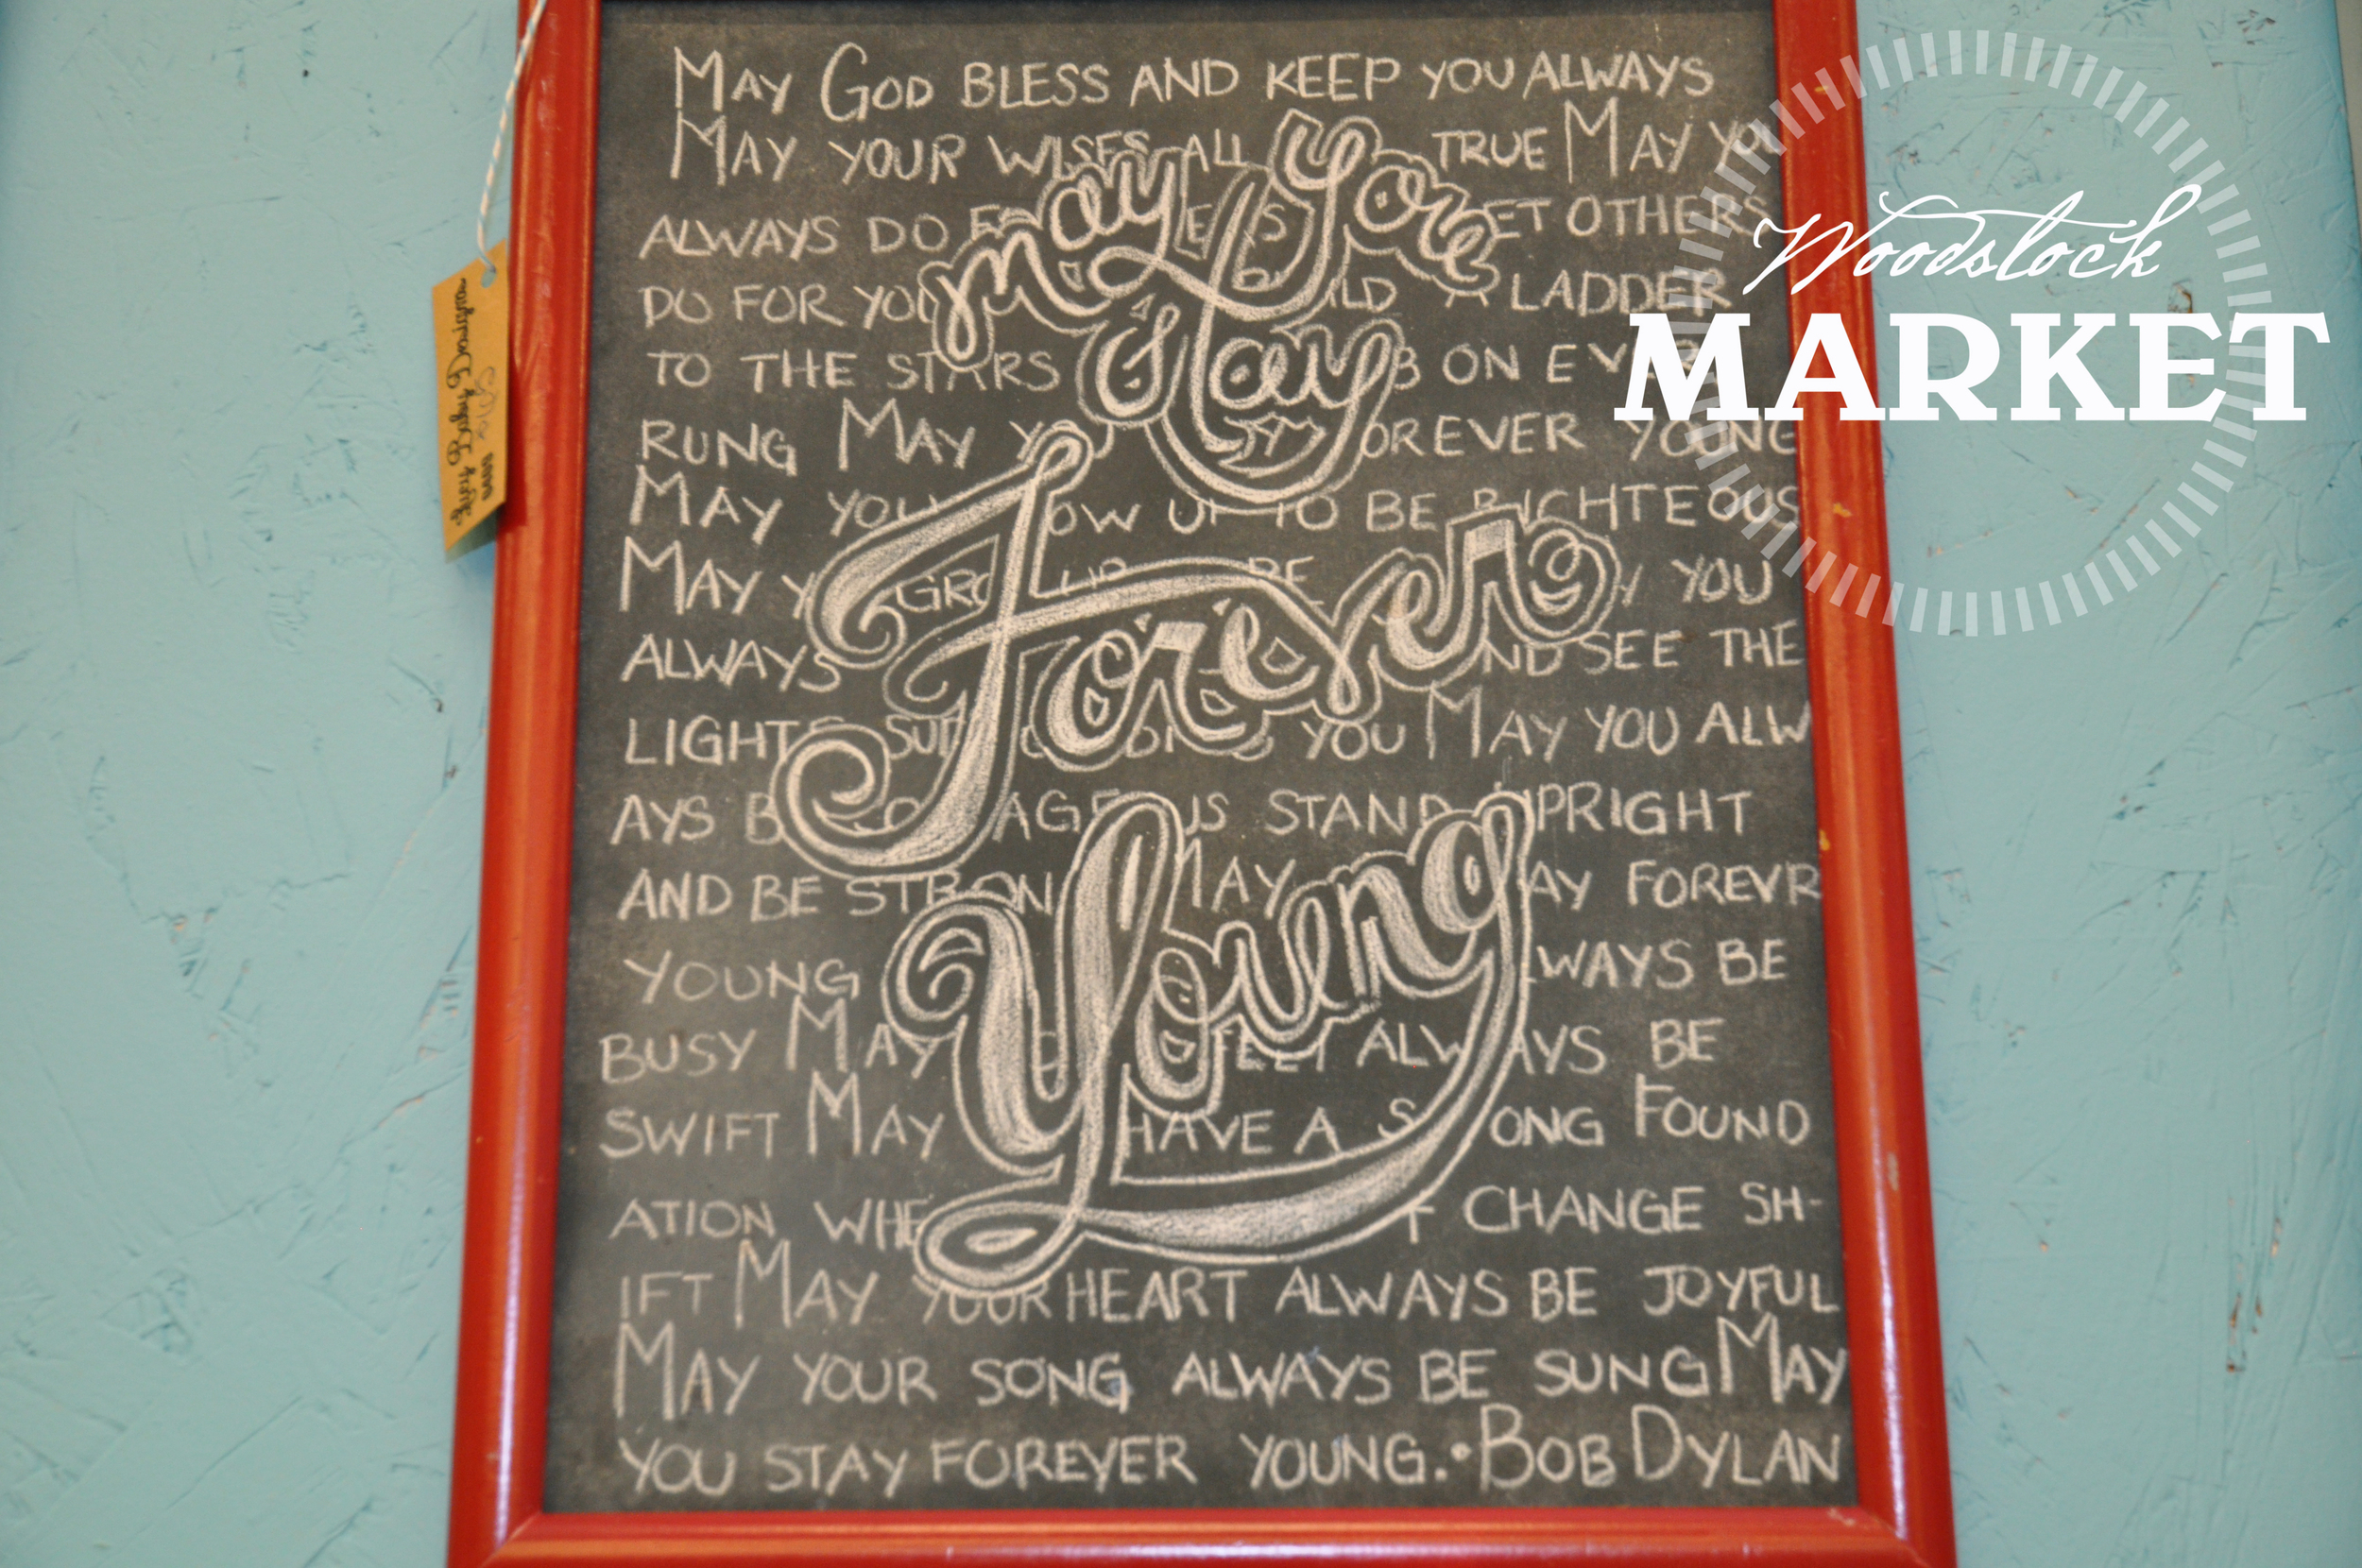 MAY GOD BLESS AND KEEP YOU ALWAYS
MAY YOUR WISES ALL TRUE MAY YOU
ALWAYS DO OTHERS
DO FOR YOU LADDER
TO THE STARS ON
RUNG MAY YOU FOREVER YOUNG
MAY YOU TO BE RIGHTEOUS
MAY YOU
ALWAYS AND SEE THE
LIGHTS YOU MAY YOU ALW
AYS STAND UPRIGHT
AND BE STRONG MAY FOREVR
YOUNG ALWAYS BE
BUSY MAY FEET ALWAYS BE
SWIFT MAY HAVE A STRONG FOUND
ATION CHANGE SH-
IFT MAY YOUR HEART ALWAYS BE JOYFUL
MAY YOUR SONG ALWAYS BE SUNG MAY
YOU STAY FOREVER YOUNG. • BOB DYLAN
may you
Stay
Forever
Young
Woodstock
MARKET